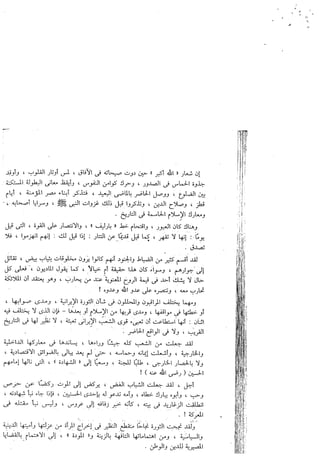 إن شعار « الله أكبر » حين دوت صيحاته في الآفاق ، لمس أوتار القلوب ، وأوقد
جذوة الحماس في الصدور ، وحرك كوامن النفوس ، وأيقظ معاني البطولة المستكنة
بين الضلوع ، ووصل الحاضر بالماضي البعيد ، فتذكر أبناء مصر المؤمنة ، أيام
قطز ، وصلاح الدين ، وتذكروا قبل ذلك غزوات النبي ﷺ ، وسرايا أصحابه ،
ومعارك الإسلام الحاسمة في التاريخ .
وهناك كان العبور ، واقتحام خط « بارليف » ، والانتصار على القوة ، التي قيل
يومًا : إنها لا تقهر ، كما قيل قديمًا عن التتار : إذا قيل لك : إنهم انهزموا ، فلا
تصدق .
لقد أقسم كثير من الضباط والجنود أنهم كانوا يرون مخلوقات بثياب بيض ، تقاتل
إلى جوارهم ، وسواء كان هذا حقيقة أم خيالاً ، كما يقول الماديون ، فعلى كل
حال لا يشك أحد في قيمة الروح المعنوية عند من يحارب ، وهو يعتقد أن الملائكة
تحارب معه ، وتنصره على عدو الله وعدوه !
ومهما يختلف المراقبون والمحللون في شأن الثورة الإيرانية ، ومدى صوابها ،
أو خطئها في مواقفها ، ومدى قربها من الإسلام أو بعدها - فإن الذي لا يختلف فيه
اثنان : أنها استطاعت أن تعبئ قوى الشعب الإيراني تعبئة ، لا نظير لها في التاريخ
القريب ، ولا في الواقع الحاضر .
لقد جعلت من الشعب كله جيشًا وراءها ، يساندها في معاركها الداخلية
والخارجية ، وأشعلت إيمانه وحماسه ، حتى لم يعد يبالي بالضوائق الاقتصادية ،
ولا بالحصار الخارجي ، طلبًا للجنة ، وسعيًا إلى « الشهادة » ، التي نالها إمامهم
الحسين ( رضي الله عنه ) !
أجل ، لقد جعلت الشباب الغض ، يركض إلى الموت ركضًا عن حرص
وحب ، وأبوه يبارك خطاه ، وأمه تدعو له بإحدى الحسنيين ، فإذا جاء نبأ شهادته ،
انطلقت الزغاريد في بيته ، كأنه خبر زفافه إلى عروس ، وليس نبأ مقتله في
المعركة !
ولقد نجحت الثورة نجاحًا منقطع النظير في إخراج المرأة من عزلتها وأميتها الدينية
والسياسية ، ومن اهتماماتها التافهة بالزينة و « الموضة » ، إلى الاهتمام بالقضايا
المصيرية للدين والوطن .